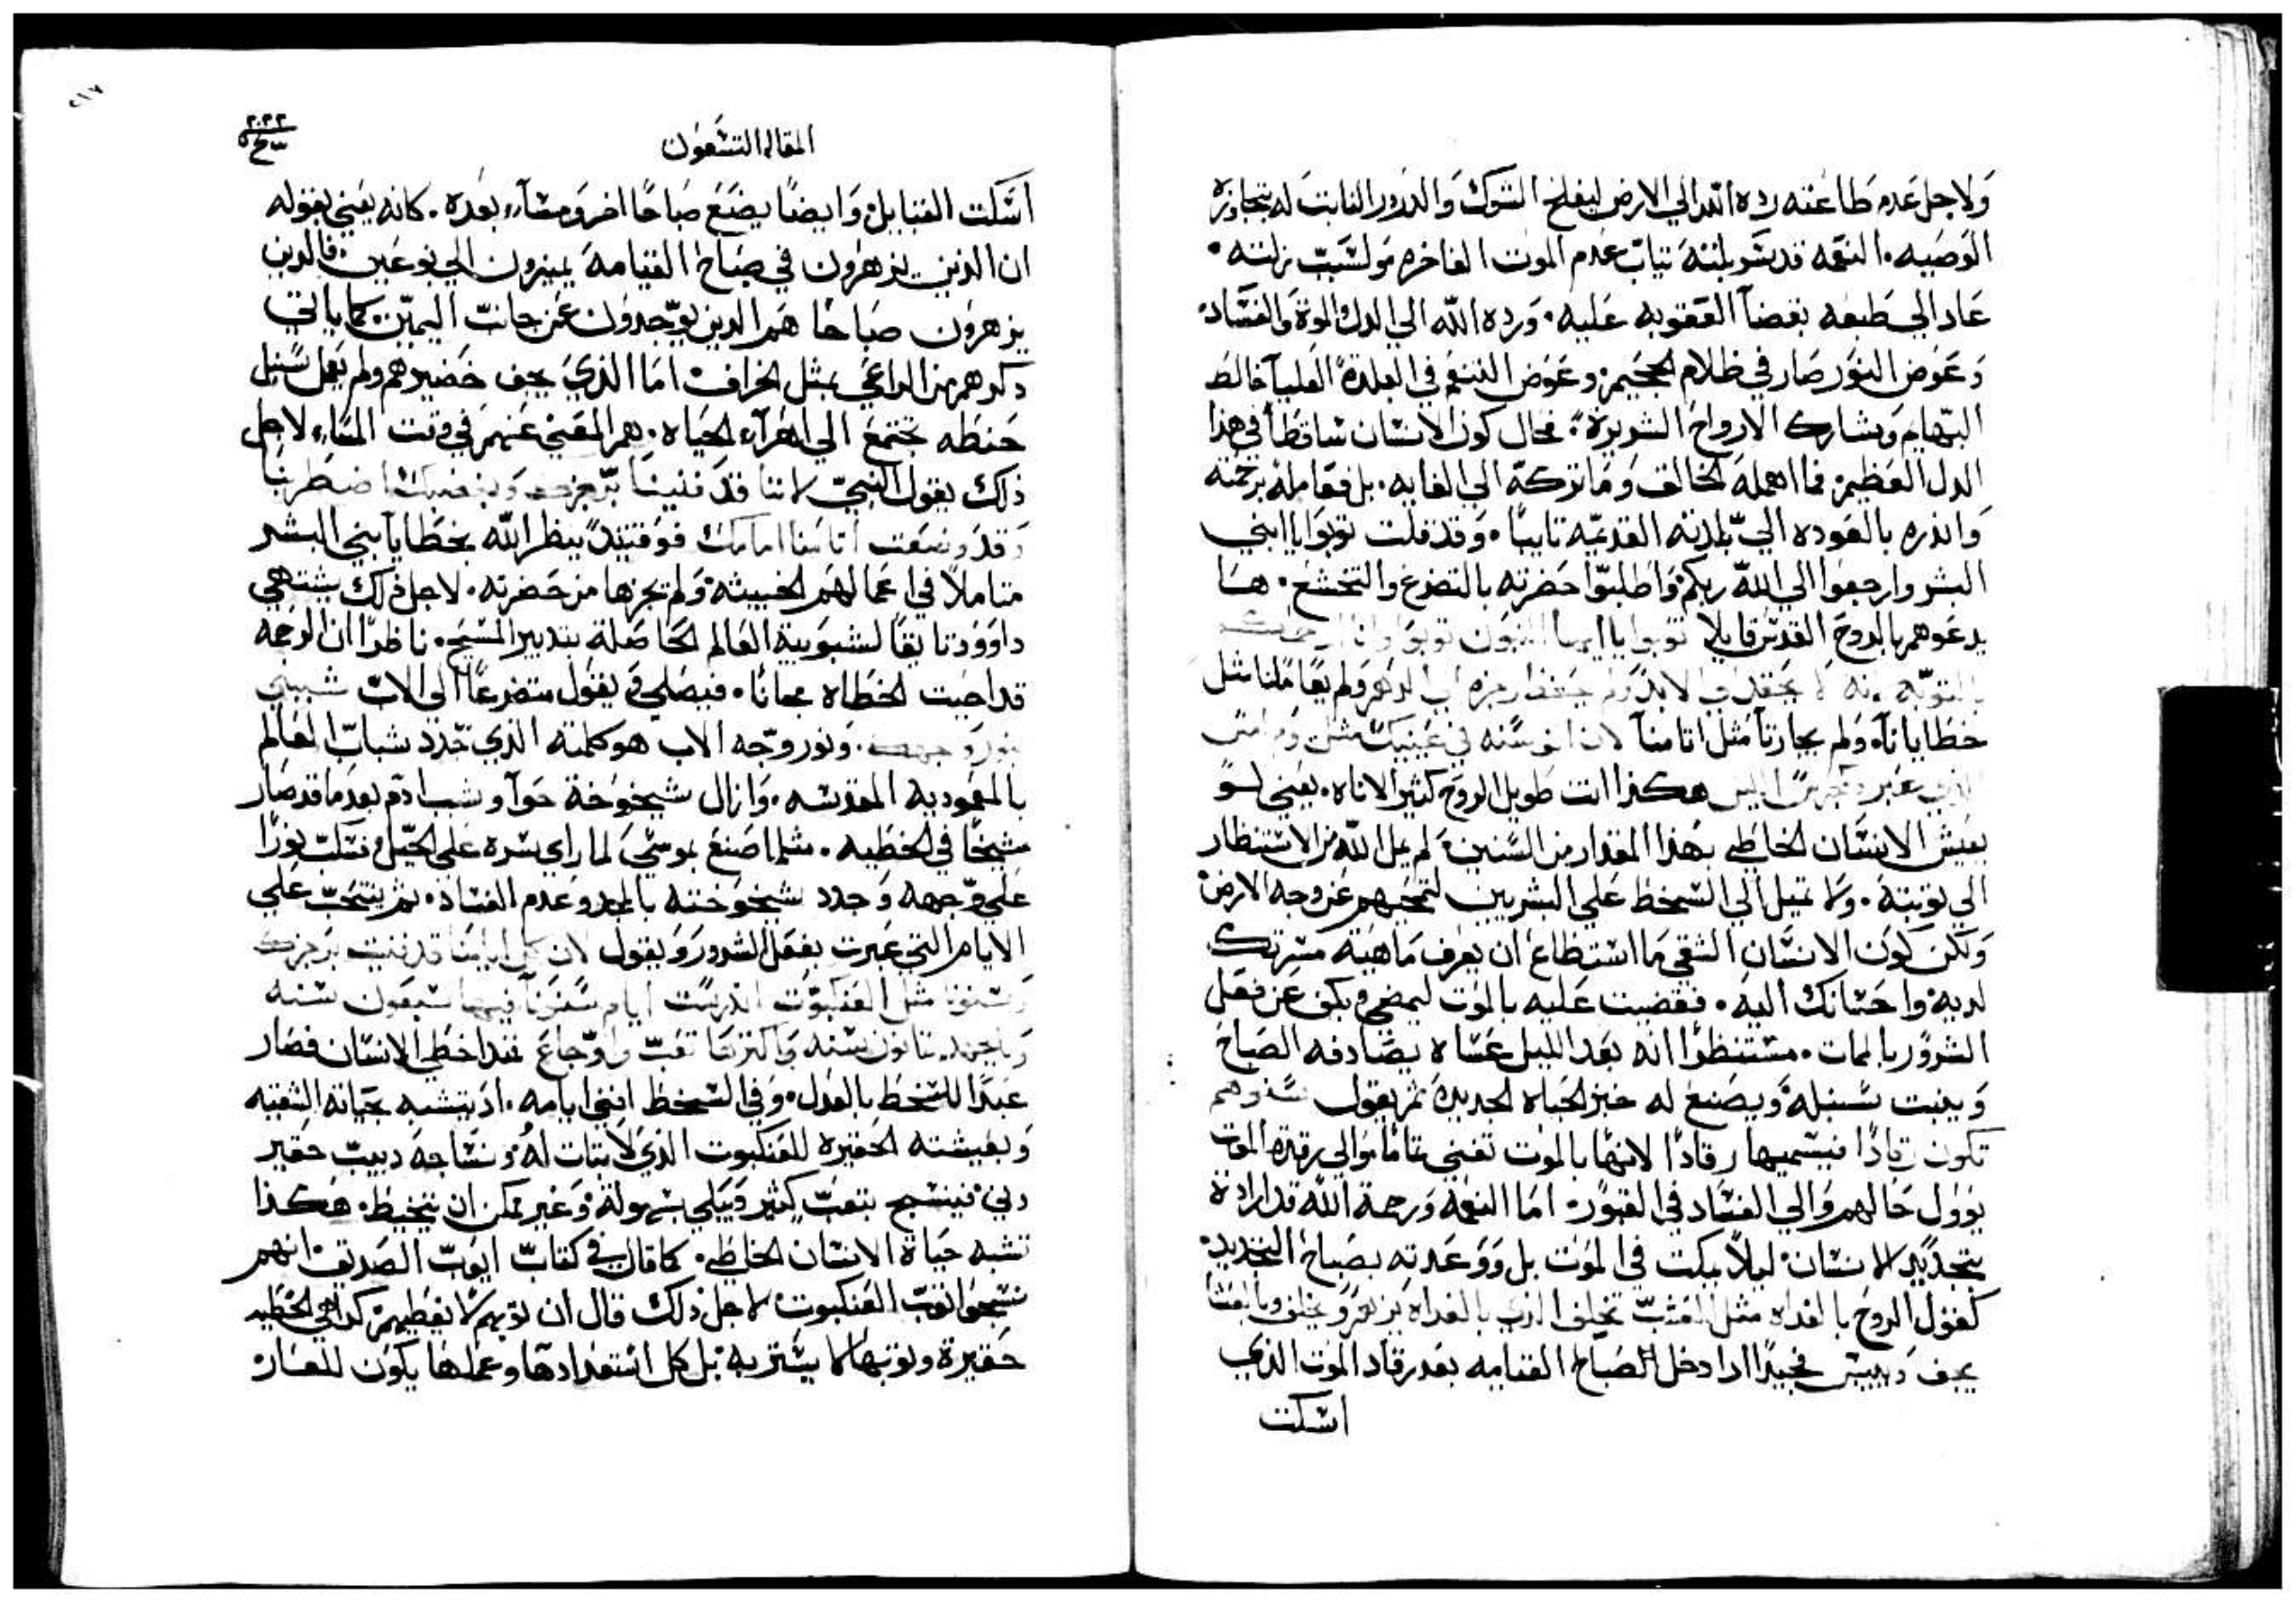 ولاجل عدم طاعته رده الله الي الارض ليفلح الشوك والدردور النابت له بتجاوزه
الوصيه. النعمه قد سربلته تياب عدم الموت الفاخره ولسبب زلته.
عاد الي طبعه بقضآ العقوبه عليه. ورده الله الي الدل والموة والفساد
وعوض النور صار في ظلام الجحيم. وعوض التنعم في البلدة العليآ خالط
البهايم وشارك الارواح الشريرة. فحال كون الانسان ساقطاً في هذا
الدل العظيم. فما اهمله الخالق وما تركه الي الغايه. بل فعامله برحمته
وانذره بالعوده الي بلدته القديمه تايباً. وقد قلت توبوا يا ابني
البشر وارجعوا الي الله ربكم واطلبوا حضرته بالتضرع والتخشع. هسا
يدعوهم بالروح القدس قايلا توبوا يا ايها
بالتوبه انه لا يحقد الي الابد ولم يحفظ رجزه الي الدهر ولم يعاملنا مثل
خطايانا. ولم يجازنا مثل اتامنآ لان الف سنه في عينيك مثل يوم امس
الذي عبر ليس هكذا انت طويل الروح كثير الاناه. يعني لو
يعيش الانسان الخاطي بهذا المقدار من السنين لم يمل الله من الاستنظار
الي توبته. ولا تميل الي السخط علي البشريين لتمحيهم عن وجه الارض
ولكن كون الانسان الشقي ما استطاع ان يعرف ماهية مسرتك
لديه واحسانك اليه. فقضيت عليه بالموت ليمضي ويكف عن فعل
الشرور بالممات. مستنظرا انه بعد الليل عساه يصادفه الصباح
وينبت سنبلة ويصنع له خبز الحياه الجديدة ثم يقول سنوهم
تكون رقاداً فيسميها رقاداً لانها بالموت تفني تماما والي رقدة الموت
يوول حالهم والي الفساد في القبور. اما النعمه ورحمة الله قد ارادة
بتجديد الانسان ليلا يمكت في الموت بل ووعدته بصباح التجديد.
كقول الروح بالغداه مثل العشب تخلف الذي بالغداه يزهر ويخلف وبالعشا
يجف وييبس فجيدا ادا دخل الصباح القيامه بعد رقاد الموت الذي
اسكت
٢١٧
المقاله التسعون
اسكت القبايل وايضاً يصنع صباحاً اخر ومسآء بعده. كانه يعني بقوله
ان الذين يزهرون في صباح القيامة يميزون الي نوعين. فالدين
يزهرون صباحاً هم الدين يوجدون عن جانب اليمين كما ياتي
ذكرهم من الراعي بمثل الخراف. اما الذي يجف خضيرهم ولم يعمل سنبل
حنطه تجتمع الي اهرآء الحياه. هم المعني عنهم في وقت المساء لاجل
ذلك يقول النبي لاننا قد فنينا برجزك وبغضبك اضطربنا
وقد وضعت اتامنا امامك فوقتيندٍ ينظر الله بخطايا بني البشر
متاملاً في اعمالهم الخبيثة ولم يحجزها من حضرته. لاجل ذلك يشتهي
داوود تايقاً لشبوبية العالم الحاصلة بتدبير المسيح. ناظراً ان الرحمه
قد احبت الخطاه مجاناً. فيصلي ويقول متضرعاً الي الاب شببني
بنور وجهك. ونور وجه الاب هو كلمته الذي جدد شباب العالم
بالمعموديه المقدسه. وازال شيخوخة حوآ وشبب ادم بعد ما قد صار
شيخاً في الخطيه. مثلما صنع بموسي لما راي سره علي الجبل وسكب نوراً
علي وجهه وجدد شيخوخته بالمجد وعدم الفساد. ثم ينتحب علي
الايام التي عبرت بفعل الشرور ويقول لان كل ايامنا قد فنيت برجزك
وسنونا مثل العنكبوت اندرست ايام سنونآ فيها سبعون سنه
وبالجهد تمانون سنه واكترها تعب واوجاع فقد اخطي الانسان فصار
عبداً للسخط بالعدل. وفي السخط افني ايامه. اذ يتشبه بحياته الشقيه
وبعيشته الحقيرة للعنكبوت الذي لا تبات له. ونساجه دبيب حقير
دني فينسج بتعب كثير ويبلي بسهولة وغير ممكن ان يتخيط. هكذا
تشبه حياة الانسان الخاطي. كما قال في كتاب ايوب الصديق انهم
نسجوا ثوب العنكبوت لاجل ذلك قال ان توبهم لا يغطيهم كذا هي الخطيه
حقيرة وتوبها لا يستر به بل كل استعدادها وعملها يكون للعار